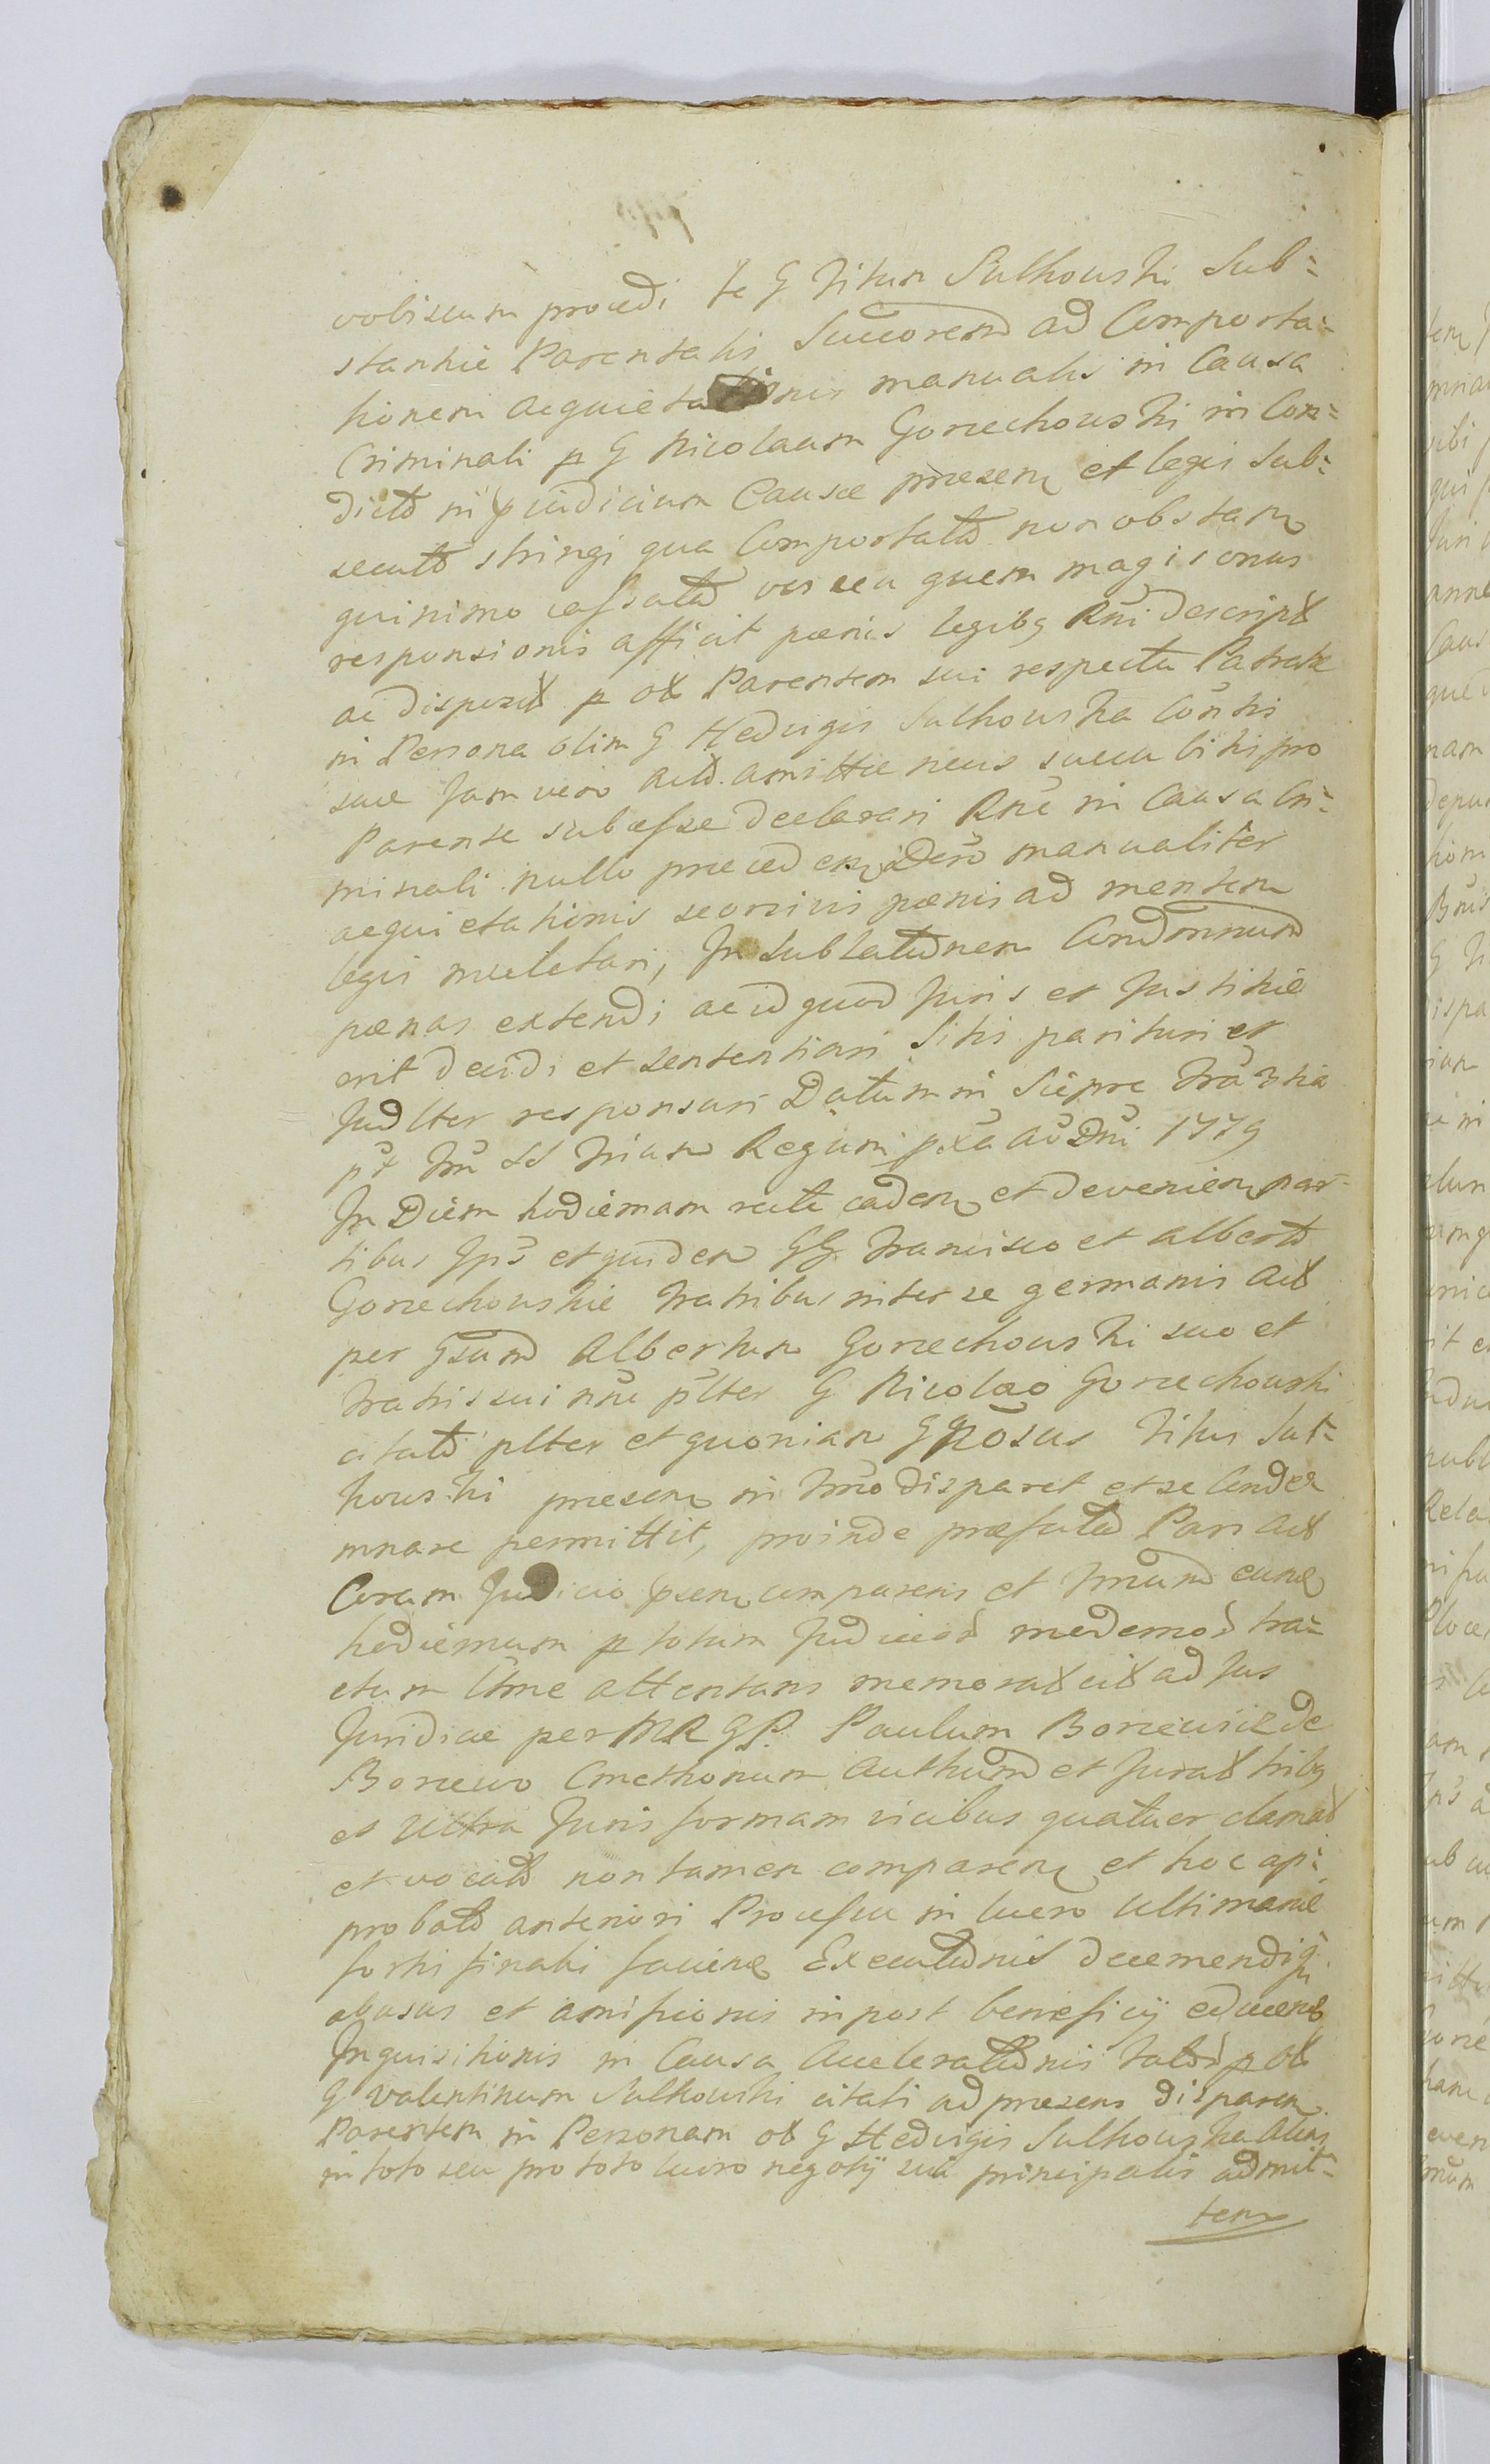 vobiscum procedi te G Titum Sulkowski Sub=
stantiæ Parentalis Succorem ad Comporta=
tionem acquietationis manualis in Causa
Criminali p G Nicolaum Gorzechowski in Con=
dictõ in pjudicium Causæ præsen et legis Sub=
secutõ stringi qua Comportatã non obstan
quinimo cassatã vos seu quem magis onus
responsionis afficit pœnis legibq Rni descript
ac disposit p ol Parentem sui respectu Patratæ
in Persona olim G Hedvigis Sulkowska Contis
suæ Jam vero Act. amittæ neus succubitis pro
Parente subesse declarari Rne in Causa Cri=
minali nullo præceden Dero manualiter
acquietationis seorsivis pœnis ad mentem
legis mulctari, In sublatudnem Condomnum
pœnas extendi ac id quod Juris et Justitiæ
erit decidi et sententiari Sitis parituri et
Judlter responsuri Datum in Sieprc
pt SS Trium Regum pxa Ao Dni 1779
In Diem hodiernam recte caden et devenien par-
tibus Ips et quidem GG Francisco et Albertõ
Gorzechowskie Fratribus inter se germanis Act
per Gsum Albertum Gorzechowski suo et
Fratris sui nne plter G Nicolao Gorzechowski
citatõ plter et quoniam G Gnosus Titus Sul=
kowski præsen in Trmo disparet et se Conde=
mnare permittit, proinde præfata Pars Act
Coram Judicio psen comparens et Trmum eund
hodiernum p totum Judicior medemor tra=
ctum Ltme attentans memorat cit ad Jus
Juridice per MR GP. Paulum Borzewicz de
Borzewo Cmethonum Authum et Jurat tribq
et ultra Juris formam vicibus quatuor clamat
et vocatõ non tamen comparen et hoc ap=
probatõ anteriori Processu in lucro ultimariæ
sortis finalis faciend Executdnis decernendiq
abusus et amissionis in post beneficij educend
Inquisitionis in Causa Acceleratdnis p ol
G Valentinum Sulkowski citati ad præsens disparen
Parentem in Personam ol G Hedvigis Sulkowska
in toto seu pro toto lucro negotij sui principalis admit=
ten